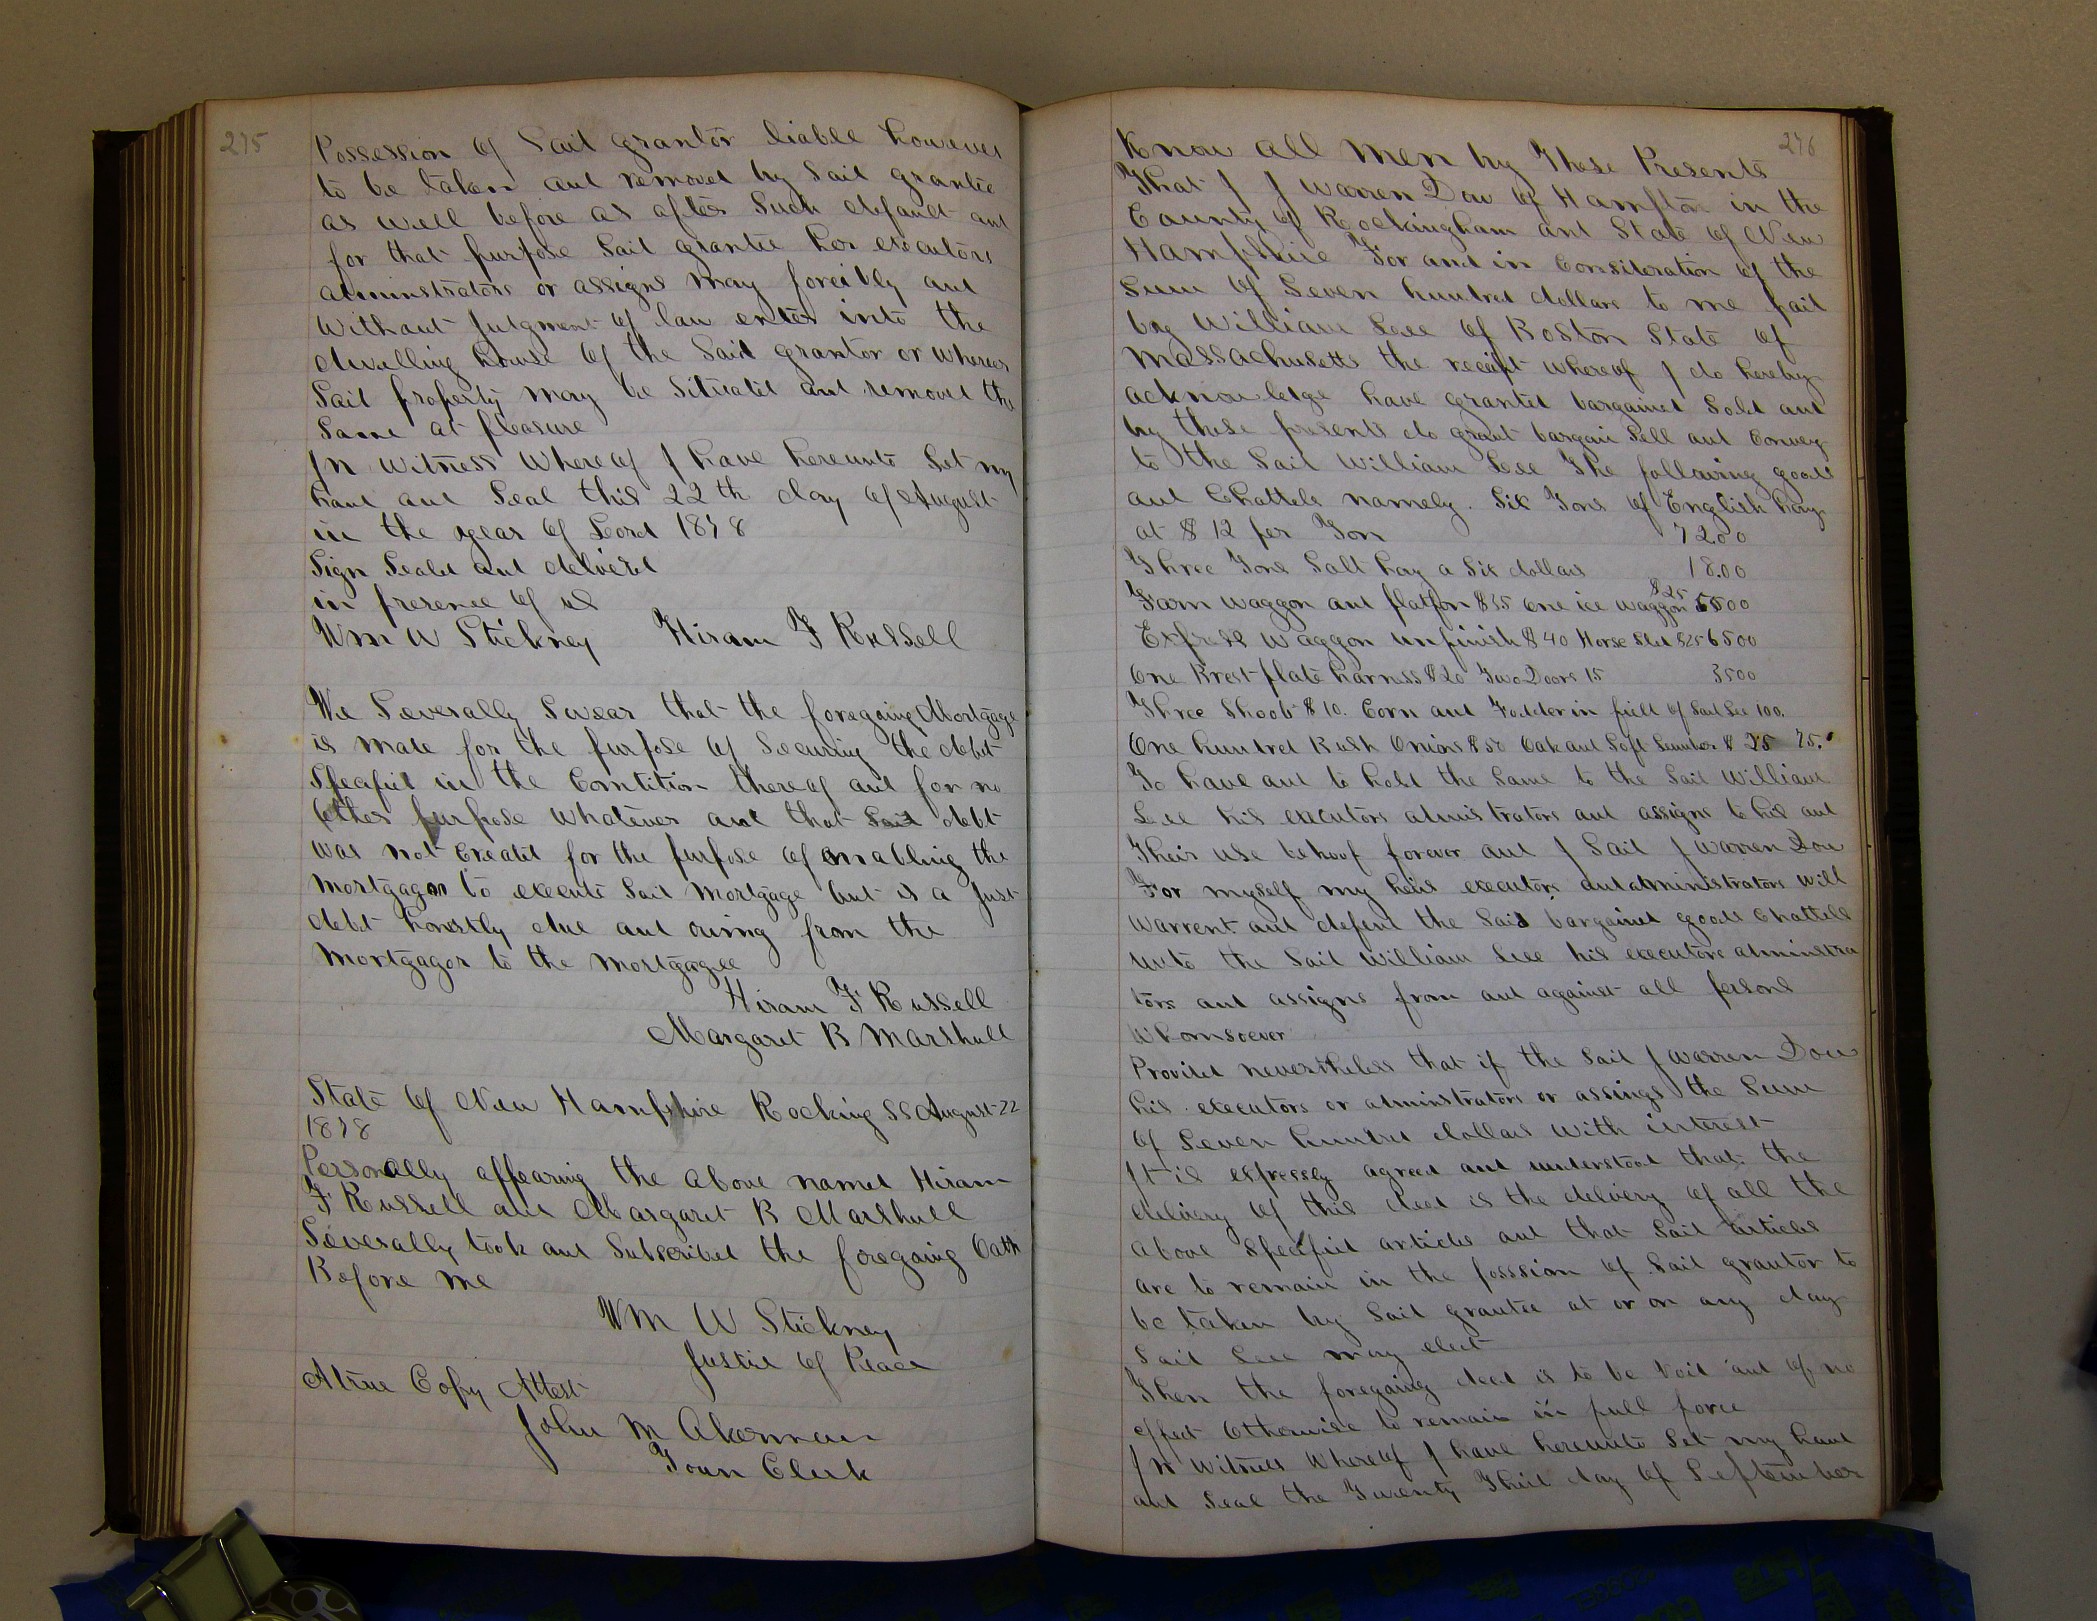 275
Possession of Said grantor liable however
to be taken and removed by Said grantee
as well before as after Such default and
for that purpose Said grantee her executors
adminstrators or assigns may forcibly and
without Judgment of law enter into the
dwelling house of the Said grantor or wherever
Said property may be Situated and removed the
Same at pleasure
In Witness Whereof I have hereunto Set my
hand and Seal this 22th day of August
in the year of Lord 1878
Sign Seald and delvired
in presence of us
Wm W Stickney Hiram F Russell
We Severally Swear that the foregoing Mortgage
is made for the purpose of Securing the debt
Specified in the Condition thereof and for no
Other purpose Whatever and that Said debt
was not Created for the purpose of enabling the
Mortgagor to execute Said Mortgage but is a Just
debt honestly due and owing from the
Mortgagor to the Mortgagee
Hiram F Russell
Margaret B Marshall
State of New Hampshire Rocking SS August 22
1878
Personally appearing the above named Hiram
F Russell and Margaret B Marshall
Severally took and Subscribed the foregoing Oath
Before me
Wm W Stickney
Justice of Peace
A true Copy Attest
John M Akerman
Town Clerk
276
Know all Men by These Presents
That I J Warren Dow of Hampton in the
County of Rockingham and State of New
Hampshire For and in Consideration of the
Sum of Seven hundred dollars to me paid
by William Lee of Boston State of
Massachusetts the receipt whereof I do hereby
acknowledge have granted bargained Sold and
by these presents do grant bargain Sell and Convey
to the Said William Lee The following goods
and Chattels namely. Six Tons of English hay
at $ 12 per Ton 72.00
Three Tons Salt hay a Six dollars 18.00
Farm Waggon and platfon $35 One ice Waggon $25 5500
Express Waggon unfinish $40 Horse Sled $25 6500
One Brest plate harness $20 Two Doors 15 3500
Three Shoots $10. Corn and Fodder in field of Said Lee 100.
One hundred Bush Onions $50 Oak and Soft Lumber $ 25 75.
To have and to hold the Same to the Said William
Lee his executors adminstrators and assigns to his and
Their use behoof forever and I Said J Warren Dow
For myself my heirs executors and adminstrators Will
Warrent and defend the Said bargained goods Chattels
unto the Said William Lee his executors adminstra
tors and assigns from and against all persons
Whomsoever
Provided nevertheless that if the Said J Warren Dow
his executors or adminstrators or assings the Sum
of Seven hundred dollars With interest
It is expressly agreed and understood that the
delivery of this deed is the delivery of all the
above Specified articles and that Said articles
are to remain in the posssion of Said grantor to
be taken by Said grantee at or on any day
Said Lee may elect
Then the foregoing deed is to be Void and of no
effect Otherwise to remain in full force
In Witness Whereof I have hereunto Set my hand
and Seal the Twenty Third day of September